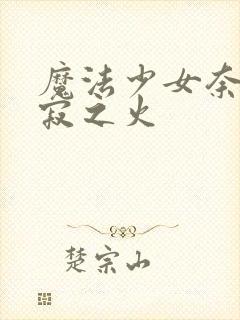 魔法少女奈
寂之火
楚宗山